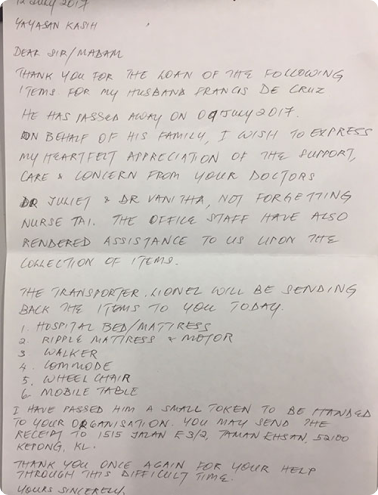 12 July 2017
YAYASAN KASIH
DEAR SIR/MADAM
THANK YOU FOR THE LOAN OF THE FOLLOWING
ITEMS FOR MY HUSBAND FRANCIS DE CRUZ
HE HAS PASSED AWAY ON 09 JULY 2017.
ON BEHALF OF HIS FAMILY, I WISH TO EXPRESS
MY HEARTFELT APPRECIATION OF THE SUPPORT,
CARE & CONCERN FROM YOUR DOCTORS
DR JULIET & DR VANITHA, NOT FORGETTING
NURSE TAI. THE OFFICE STAFF HAVE ALSO
RENDERED ASSISTANCE TO US UPON THE
COLLECTION OF ITEMS.
THE TRANSPORTER LIONEL WILL BE SENDING
BACK THE ITEMS TO YOU TODAY.
1. HOSPITAL BED/MATTRESS
2. RIPPLE MATTRESS & MOTOR
3. WALKER
4. COMMODE
5. WHEEL CHAIR
6. MOBILE TABLE
I HAVE PASSED HIM A SMALL TOKEN TO BE HANDED
TO YOUR ORGANISATION. YOU MAY SEND THE
RECEIPT TO 1515 JALAN E3/2, TAMAN EHSAN, 52100
KEPONG, KL.
THANK YOU ONCE AGAIN FOR YOUR HELP
THROUGH THIS DIFFICULT TIME.
YOURS SINCERELY,